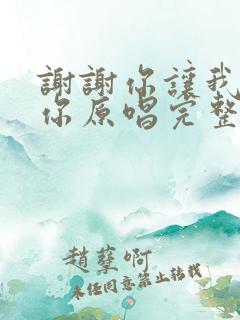 謝謝你讓我
你原唱完整
趙孽啊
未经同意禁止转载